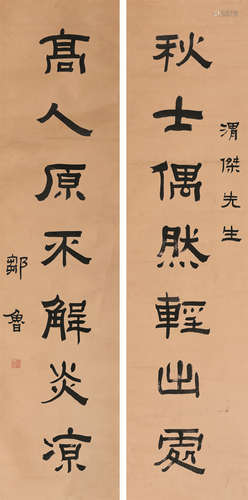 渭傑先生
秋士偶然輕出處
高人原不解炎凉
鄒魯